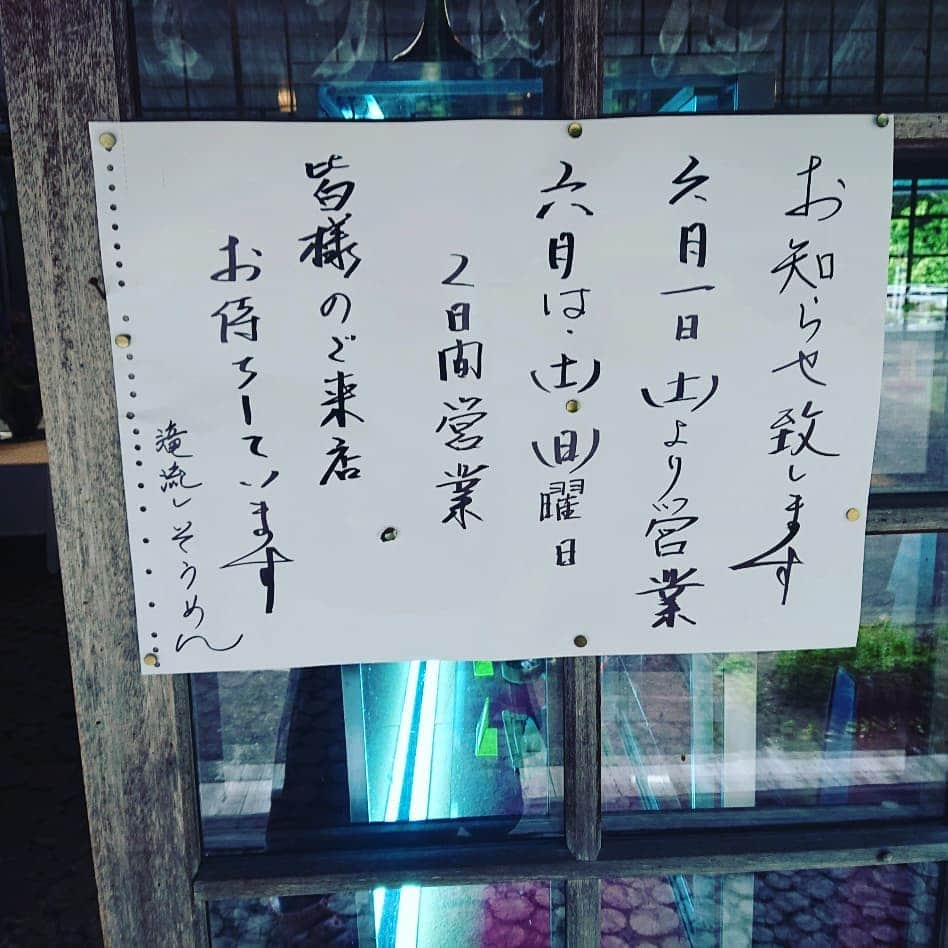 お知らせ致します
六月一日(土)より営業
六月は、(土)・(日)曜日
2日間営業
皆様のご来店
お待ちしています
滝流しそうめん